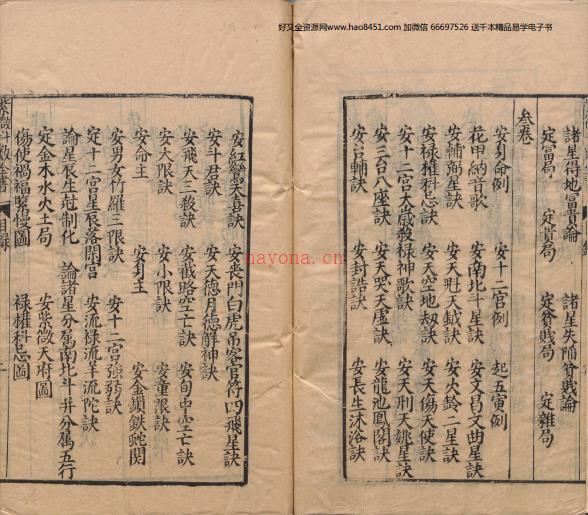 好又全资源网www.hao8451.com 加微信 66697526 送千本精品易学电子书
諸星得地富貴論 諸星失陷貧賤論
定富局 定貴局 定貧賤局 定雜局
叁卷
安身命例 安十二宮例 起五寅例
花甲納音歌 安南北斗星訣 安文昌文曲星訣
安輔弼星訣 安天魁天鉞訣 安火鈴二星訣
安祿權科忌訣 安天空地刼訣 安天傷天使訣
安十二宮太歲殺祿神歌訣 安天刑天姚星訣
安三台八座訣 安天哭天虛訣 安龍池鳳閣訣
安台輔訣 安封誥訣 安長生沐浴訣
安紅鸞天喜訣 安喪門白虎吊客官符四飛星訣
安斗君訣 安天德月德解神訣
安飛天三殺訣 安截路空亡訣 安旬中空亡訣
安大限訣 安小限訣 安童限訣
安命主 安身主 安金鎖鉄蛇関
安男女竹羅三限訣 安十二宮強弱訣
定十二宮星辰落閑宮 安流祿流羊流陀訣
論星辰生尅制化 論諸星分屬南北斗并分屬五行
定金木水火土局 安紫微天府圖
傷使禍福緊慢圖 祿權科忌圖
紫微斗數全書
目錄
hayona.cn